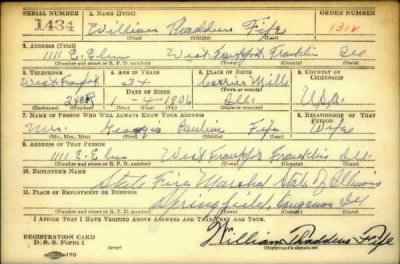 SERIAL NUMBER 1. NAME (Print) ORDER NUMBER
1434 William Thaddus Fife 1312
(First) (Middle) (Last)
2. ADDRESS (Print)
1111 E. Elm West Frankfort Franklin Ill
(Number and street or R. F. D. number) (Town) (County) (State)
3. TELEPHONE 4. AGE IN YEARS 5. PLACE OF BIRTH 6. COUNTRY OF CITIZENSHIP
West Frankfort 34 Carrier Mills
(Town or county)
DATE OF BIRTH
-4-1906 Ill. U.S.A.
(Exchange) (Number) (Mo.) (Day) (Yr.) (State or country)
7. NAME OF PERSON WHO WILL ALWAYS KNOW YOUR ADDRESS 8. RELATIONSHIP OF THAT PERSON
Mrs. Georgia Pauline Fife Wife
(Mr., Mrs., Miss) (First) (Middle) (Last)
9. ADDRESS OF THAT PERSON
1111 E. Elm West Frankfort Franklin Ill.
(Number and street or R. F. D. number) (Town) (County) (State)
10. EMPLOYER'S NAME
State Fire Marshal State of Illinois
11. PLACE OF EMPLOYMENT OR BUSINESS
Springfield, Sangamon Ill
(Number and street or R. F. D. number) (Town) (County) (State)
I AFFIRM THAT I HAVE VERIFIED ABOVE ANSWERS AND THAT THEY ARE TRUE.
REGISTRATION CARD
D. S. S. Form 1 William Thaddus Fife
(Registrant's signature)